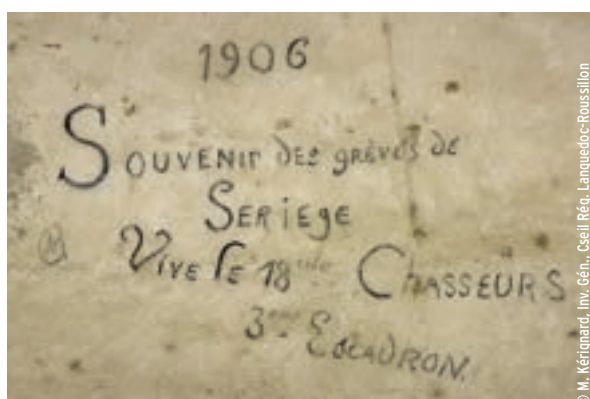 1906
Souvenir des grèves de
Seriege
Vive le 18ème Chasseurs
3me Escadron.
© M. Kérignard, Inv. Gén., Cseil Rég. Languedoc-Roussillon